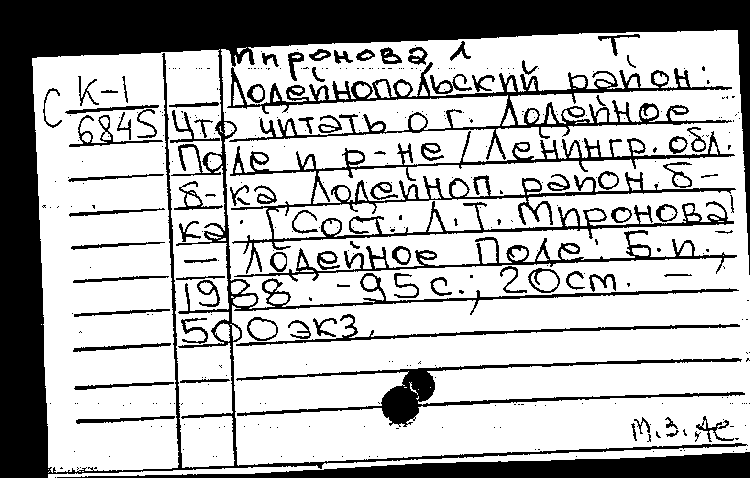 Миронова Л Т
С К-1 Лодейнопольский район:
6845 Что читать о г. Лодейное
Поле и р-не / Ленингр. обл.
б-ка, Лодейноп. район. б-
ка; [Сост.: Л.Т. Миронова]
– Лодейное Поле: Б.и.,
1988. – 95 с.; 20 см. –
500 экз.
М.З.